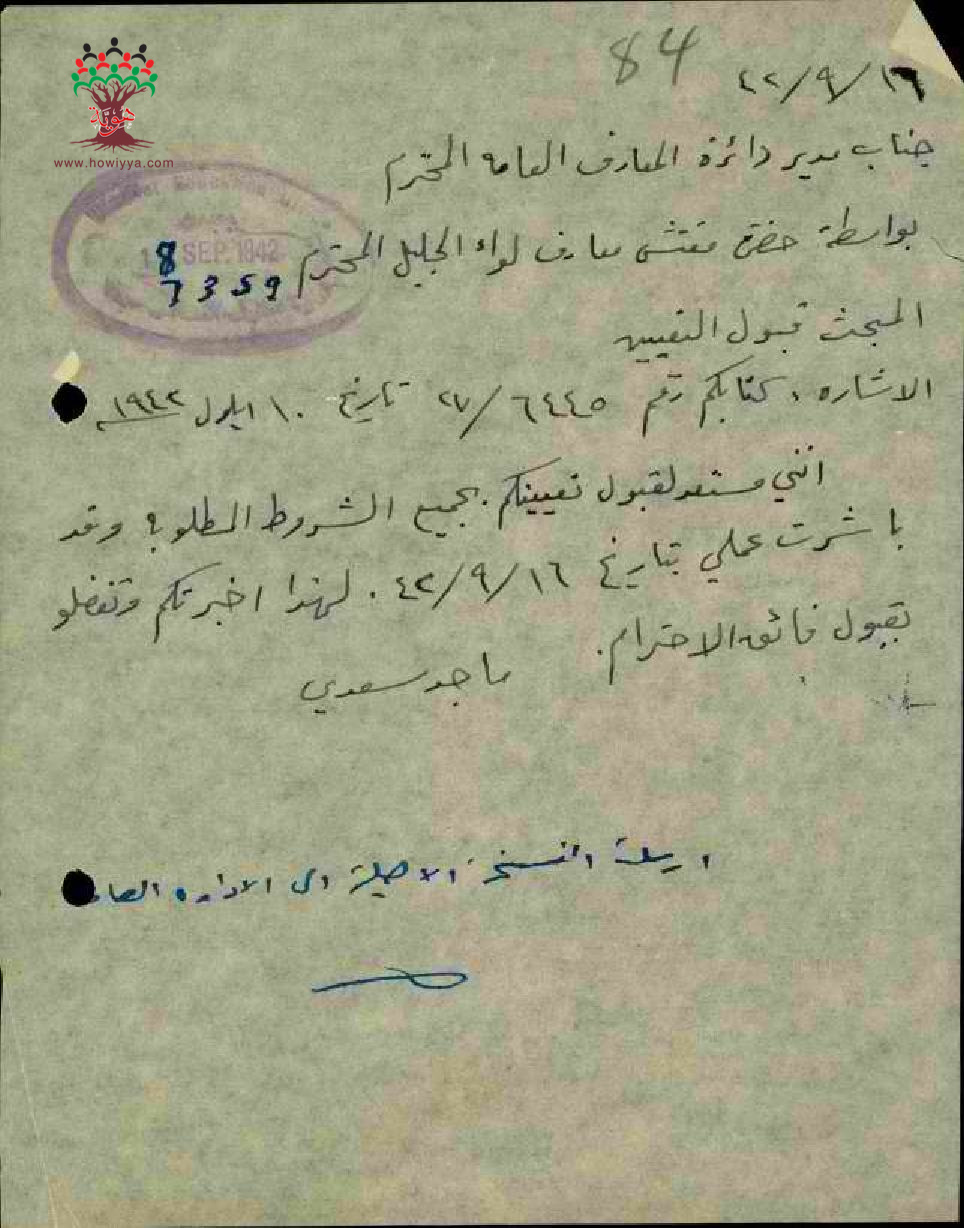 84
٤٢/٩/١٦
جناب مدير دائرة المعارف العامه المحترم
بواسطة حضرة مفتش معارف لواء الجليل المحترم
SEP. 1942
8
7359
المبحث قبول التعيين
الاشاره ، كتابكم رقم ٦٤٤٥/٢٧ تاريخ ١٠ ايلول ١٩٤٢
انني مستعد لقبول تعيينكم بجميع الشروط المطلوبة وقد
باشرت عملي بتاريخ ٤٢/٩/١٦ . لهذا اخبرتكم وتفضلو
بقبول فائق الاحترام . ماجد سعدي
ارسلت النسخة الاصلية الى الاداره العامه
هوية
www.howiyya.com